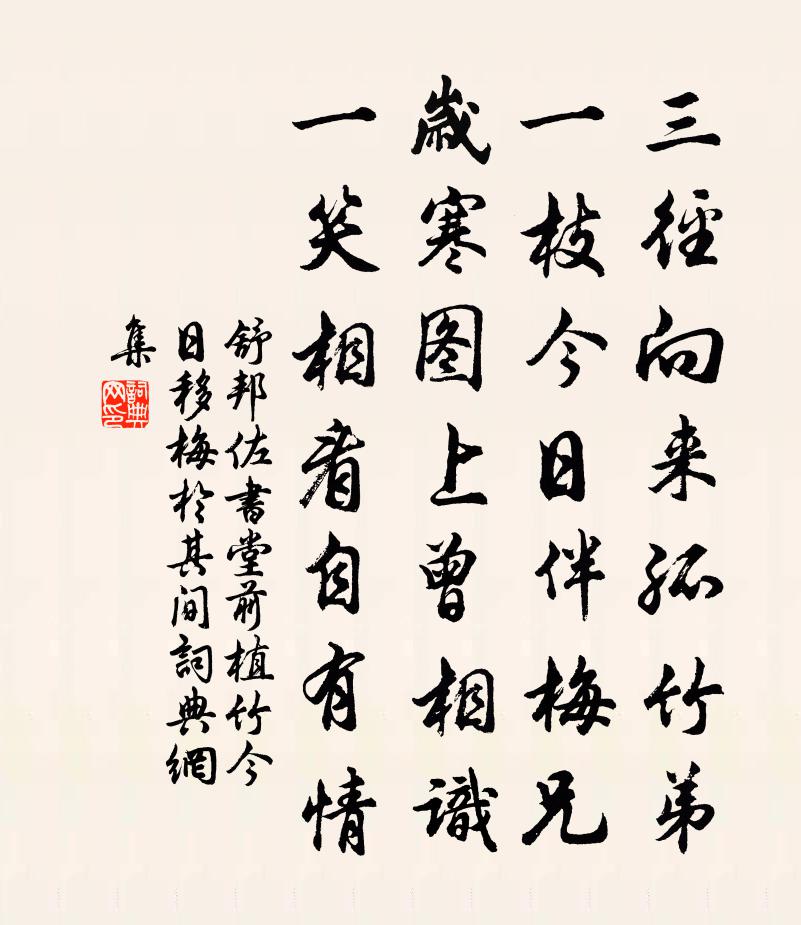 三徑向来孤竹弟
一枝今日伴梅兄
歲寒图上曾相識
一笑相看自有情
舒邦佐書堂前植竹今
日移梅於其间詞典網
集
詞典
网印